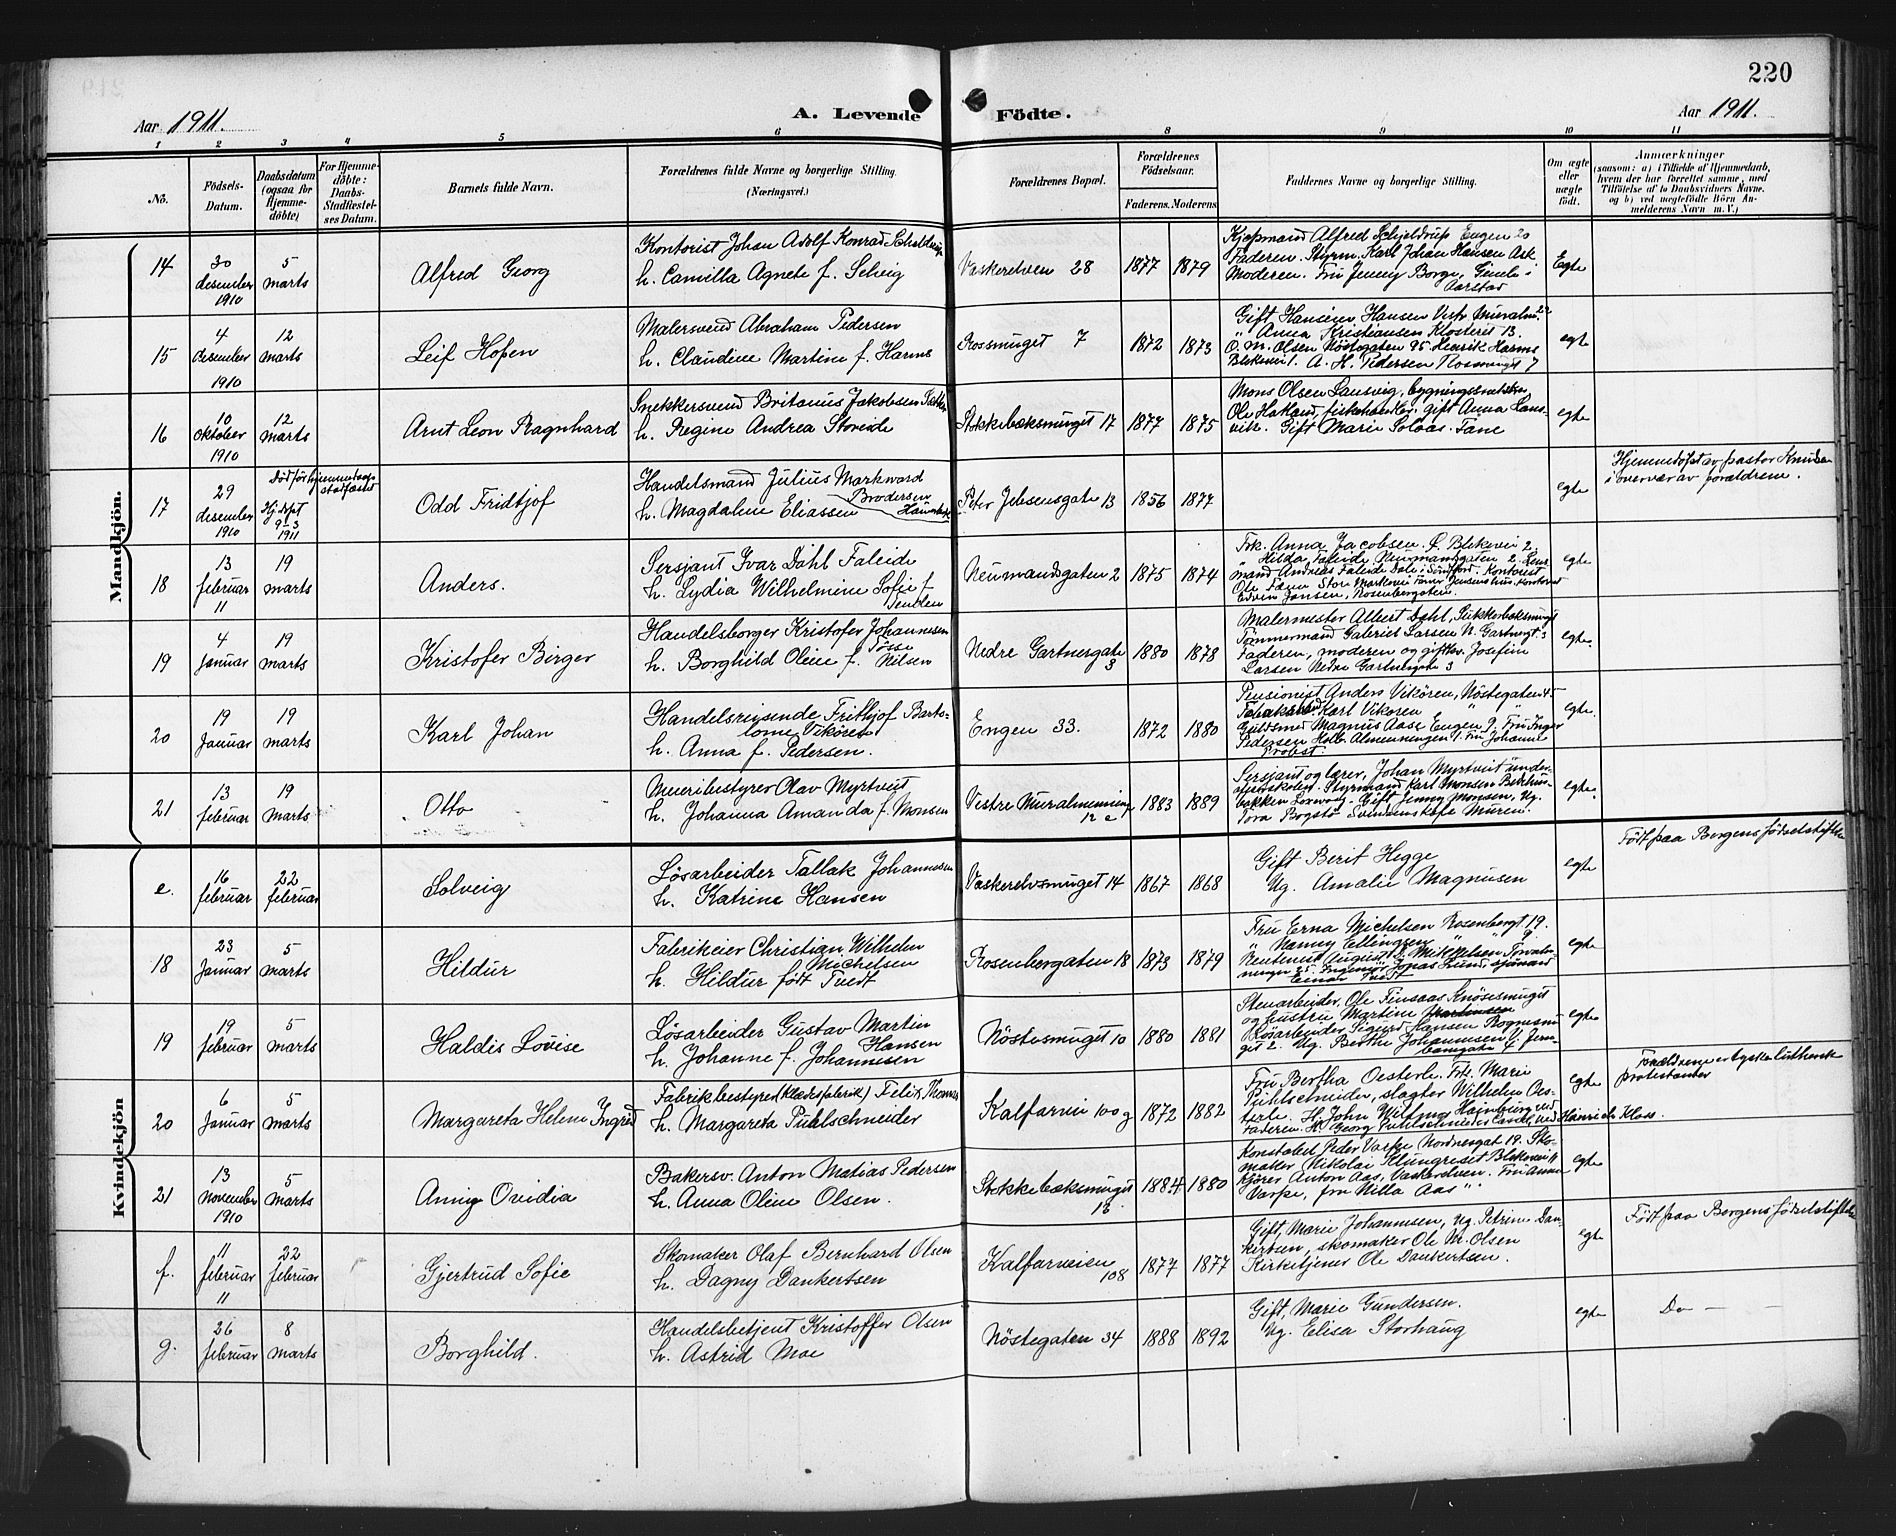 220
Aar 1911.
A. Levende Födte.
Aar 1911.
1 2 3 4 5 6 8 9 10 11
No.
Födsels-Datum.
Daabsdatum (ogsaa for Hjemmedöbte)
For Hjemmedöbte: Daabs-Stadfæstelses Datum.
Barnets fulde Navn.
Forældrenes fulde Navne og borgerlige Stilling. (Næringsvei.)
Forældrenes Bopæl.
Forældrenes Födselsaar.
Faderens. Moderens.
Faddernes Navne og borgerlige Stilling.
Om ægte eller uægte födt.
Anmærkninger
(saasom: a) i Tilfælde af Hjemmedaab,
hvem der har forrettet samme, med
Tilföielse af to Daabsvidners Navne,
og b) ved uægtefödte Börn Anmelderens Navn m. V.)
Mandkjön.
14
30 desember 1910
5 marts
Alfred Georg
Kontorist Johan Adolf Konrad
h. Camilla Agnete f. Selvig
Vaskerelven 28
1877 1879
Kjøpmand Alfred Schjeldrup Engen 20
Faderen. Styrm. Karl Johan Hansen Ask
Moderen. Fru Jenny Borge, Gimle i
Aarstad
Egte
15
4 desember 1910
12 marts
Leif Hopen
Malersvend Abraham Pedersen
h. Claudine Martine f. Harms
Rosesmuget 7
1872 1873
Gift Hansine Hansen Vestr. Muralm. 22
" Anna Kristiansen Klosteret 13.
O. M. Olsen Nöstegaten 95. Henrik Harms
Blekevei 1. A. H. Pedersen Rosesmuget 7
egte
16
10 oktober 1910
12 marts
Arnt Leon Ragnhard
Snekkersvend Britanius Jakobsen
h. Regine Andrea Storeide
Stokkebæksmuget 17
1877 1875
Mons Olsen Lansvig, bygningssnekker
Ole Hakand, fiskehandler. gift Anna Lansvik. Gift Marie Solaas. Fane
egte
17
29 desember 1910
Död för hjemmedaaps stadfæstet
Hj. dpt 9-3 1911
Odd Fridtjof
Handelsmand Julius Markward
Brodersen
h. Magdalene Eliassen
Peter Jebsensgate 13
1856 1877
egte
Hjemmedöpt av pastor Knudsen
i overvær av forældrene.
18
13 februar 11
19 marts
Anders.
Sersjant Ivar Dahl Faleide
h. Lydia Wilhelmine Sofie f.
Neumandsgaten 2
1875 1874
Frk. Anna Jacobsen. L. Blekevei 2
" Hilda Faleide Neumandsgaten 2. Lensmand Andreas Faleide Dale i Söndfjord. Kontorist
Edvin Jansen, Rosenbergaten.
egte
19
4 Januar
19 marts
Kristofer Birger
Handelsborger Kristofer Johannesen
Tösse
h. Borghild Oline f. Nilsen
Nedre Gartnergate 3
1880 1878
Malermester Albert Dahl, Sukkerhusmuget
Tömmermand Gabriel Larsen N. Gartnergt. 3
Faderen, moderen og giftkv. Josefine
Larsen Nedre Gartnergate 3
egte.
20
19 Januar
19 marts
Karl Johan
Handelsreisende Frithjof Bartolome Vikören
h. Anna f. Pedersen.
Engen 33.
1872 1880
Pensionist Anders Vikören, Nöstegaten 45
Karl Vikoren " "
Guldsmed Magnus Aase Engen 9. Fru Inger
Pedersen Holb. Almenningen 1. Fru Johanne
Probst
egte.
21
13 februar
19 marts
Otto
Meieribestyrer Olav Myrtveit
h. Johanna Amanda f. Monsen
Vestre Muralmenning 12 c
1883 1889
Sersjant og lærer, Johan Myrtveit underofficerskolen. Styrmand Karl Monsen
bakken Laxevaag. Gift Jenny Monsen, Ug.
Tora Bogstø Muren.
egte.
Kvindekjön
e.
16 februar
22 februar
Solveig
Lösarbeider Tallak Johannesen
h. Katrine Hansen
Vaskerelvsmuget 14
1867 1868
Gift Berit Hegge
Ug. Amalie Magnusen
egte
Födt paa Bergens födselstiftelse
18
23 Januar
5 marts
Hildur
Fabrikeier Christian Wilhelm
Michelsen
h. Hildur födt Tvedt
Rosenbergaten 18
1873 1879
Fru Erna Michelsen Rosenbergt 19.
" Nanny Ellingsen " 9
Rentenist August L. Mikkelsen Torvalmenningen 25. Ingeniör Jonas Lund, sjömand
Einar Tvedt
egte
19
19 februar
5 marts
Haldis Lovise
Lösarbeider Gustav Martin
Hansen
h. Johanne f. Johannesen
Nöstesmuget 10
1880 1881
Stenarbeider, Ole Finsaas Knösesmuget
og hustru Martine
Lösarbeider Sigurd Hansen
get 2. Ug. Berthe Johannesen
egte
20
6 Januar
5 marts
Margareta Helene Ingrid
Fabrikbestyrer (Klædesfabrik) Felix Thomas
h. Margareta Puhlschneider
Kalfarvei 100 g
1872 1882
Fru Bertha Oesterle. Frk. Marie
Puhlschneider, slagter Wilhelm Oesterle. Hr. John Wittmos Hamburg ved
Faderen. Hr. Georg Puhlschneider ved Heinrich Kloss.
egte
Forældrene er tyske lutherske
protestanter
21
13 November 1910
5 marts
Anny Ovidia
Bakersv. Anton Matias Pedersen
h. Anna Oline Olsen.
Stokkebæksmuget 12
1884 1880
Konstabel Peder Varpe Nordnesgat 19. Skomaker Nikolai Klungreset Blekevei 11
Kjörer Anton Aas, Vaskerelven. Fru Anna
Varpe, fru Milla Aas " .
egte
f.
11 februar 11
22 februar
Gjertrud Sofie
Skomaker Olaf Bernhard Olsen
h. Dagny Dankertsen
Kalfarveien 108
1877 1877
Gift, Marie Johannesen, ug. Petrine Dankertsen, skomaker Ole Kr. Olsen
Kirketjener Ole Dankertsen.
egte
Födt paa Bergens födselstiftelse
g.
26 februar
8 marts
Borghild.
Handelsbetjent Kristoffer Olsen
h. Astrid Moe
Nöstegaten 34
1888 1892
Gift, Marie Gundersen.
Ug. Elisa Storhaug
egte
Do —